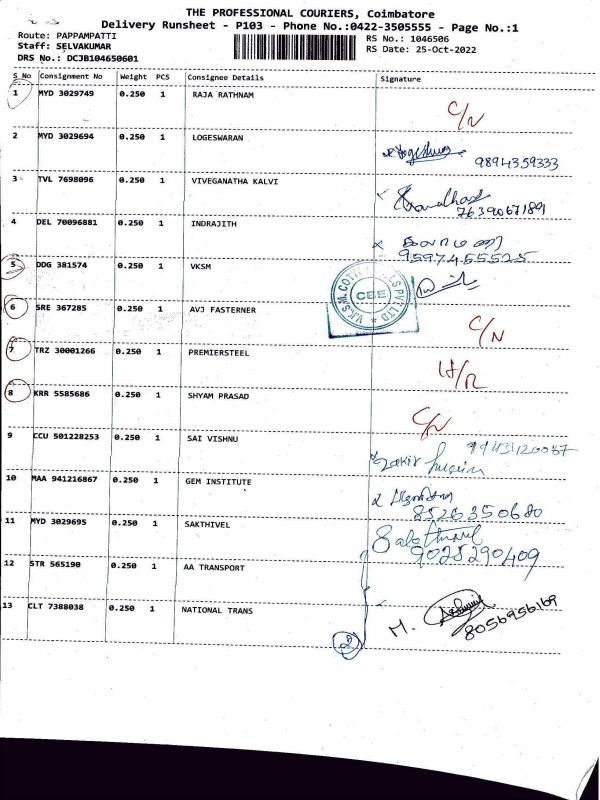 THE PROFESSIONAL COURIERS, Coimbatore
Delivery Runsheet - P103 - Phone No.:0422-3505555 - Page No.:1
Route: PAPPAMPATTI
RS No.: 1046506
Staff: SELVAKUMAR
RS Date: 25-Oct-2022
DRS No.: DCJB104650601
S No Consignment No Weight PCS Consignee Details Signature
1 MYD 3029749 0.250 1 RAJA RATHNAM
C/N
2 MYD 3029694 0.250 1 LOGESWARAN
9894359333
3 TVL 7698096 0.250 1 VIVEGANATHA KALVI
7639067189
4 DEL 70096881 0.250 1 INDRAJITH
9597455525
5 DDG 381574 0.250 1 VKSM
CBE
6 SRE 367285 0.250 1 AVJ FASTERNER
C/N
7 TRZ 30001266 0.250 1 PREMIERSTEEL
8 KRR 5585686 0.250 1 SHYAM PRASAD
C/N
9 CCU 501228253 0.250 1 SAI VISHNU
10 MAA 941216867 0.250 1 GEM INSTITUTE
8526350680
11 MYD 3029695 0.250 1 SAKTHIVEL
Sakthivel
9025290409
12 STR 565190 0.250 1 AA TRANSPORT
13 CLT 7388038 0.250 1 NATIONAL TRANS
M.
8056956169